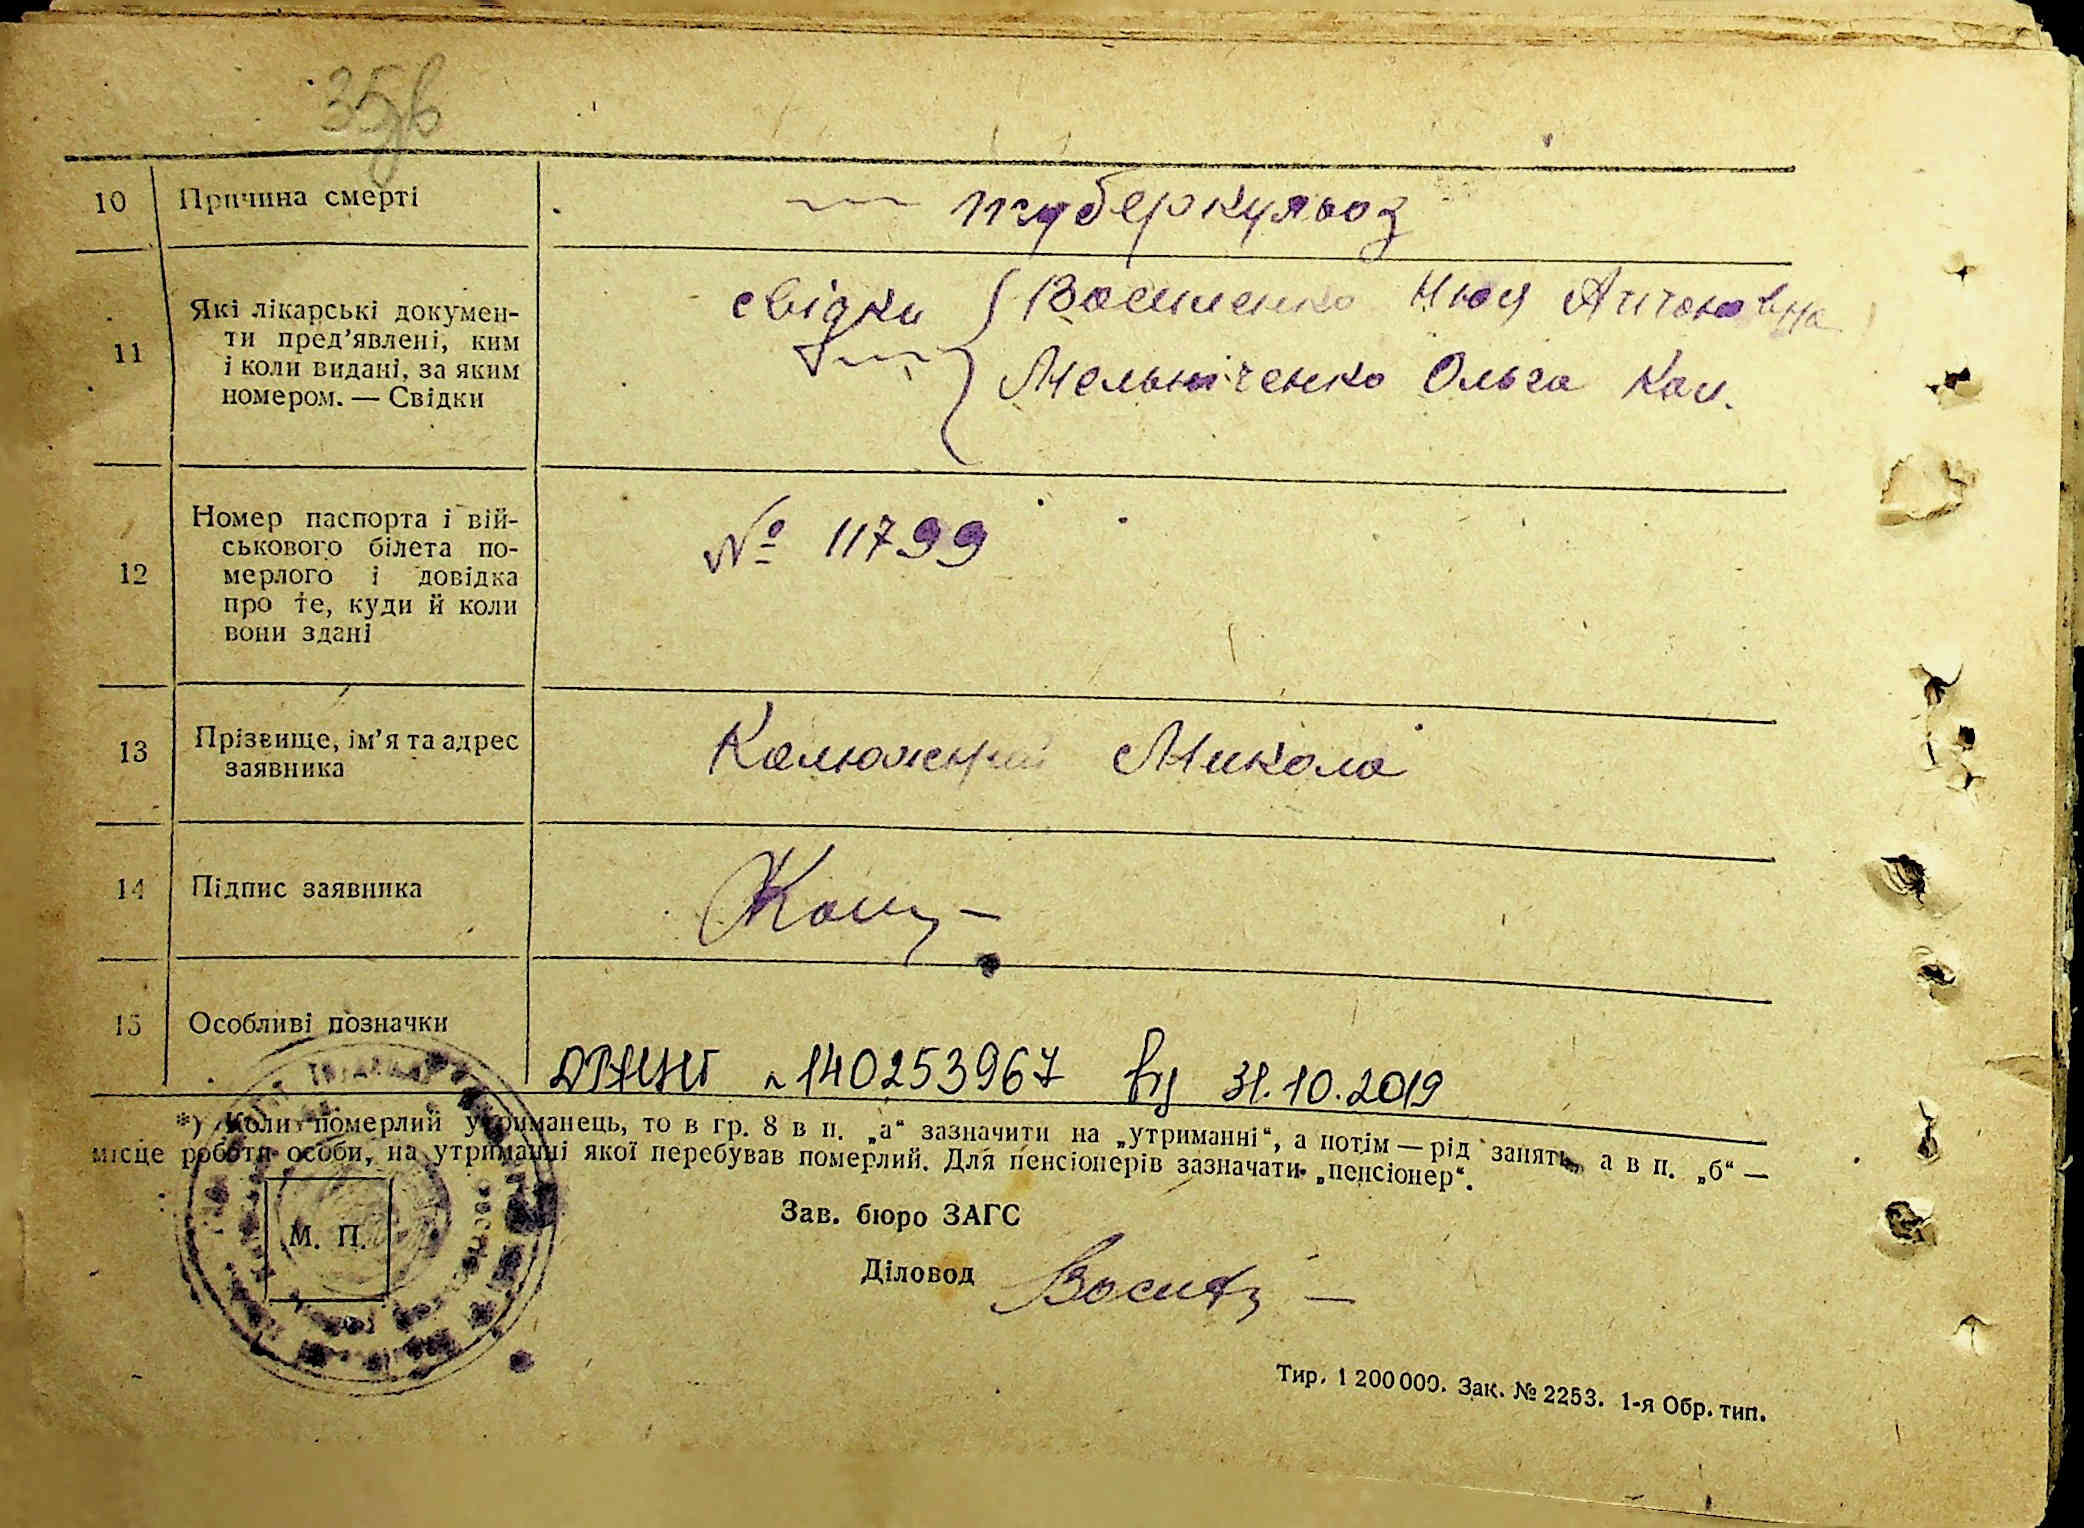 10 Причина смерті туберкульоз
11 Які лікарські докумен-
ти пред’явлені, ким
і коли видані, за яким
номером. — Свідки
свідки Василенко Нюся Антоновна
Мельніченко Ольга Кал.
12 Номер паспорта і вій-
ськового білета по-
мерлого і довідка
про те, куди й коли
вони здані
№ 11799
13 Прізвище, ім’я та адрес
заявника
Калюжний Микола
14 Підпис заявника
15 Особливі позначки
140253967 від 31.10.2019
*) Коли померлий утриманець, то в гр. 8 в п. „а“ зазначити на „утриманні“, а потім — рід занять, а в п. „б“ —
місце роботи особи, на утриманні якої перебував померлий. Для пенсіонерів зазначати „пенсіонер“.
М. П.
Зав. бюро ЗАГС
Діловод
Тир. 1 200 000. Зак. № 2253. 1-я Обр. тип.